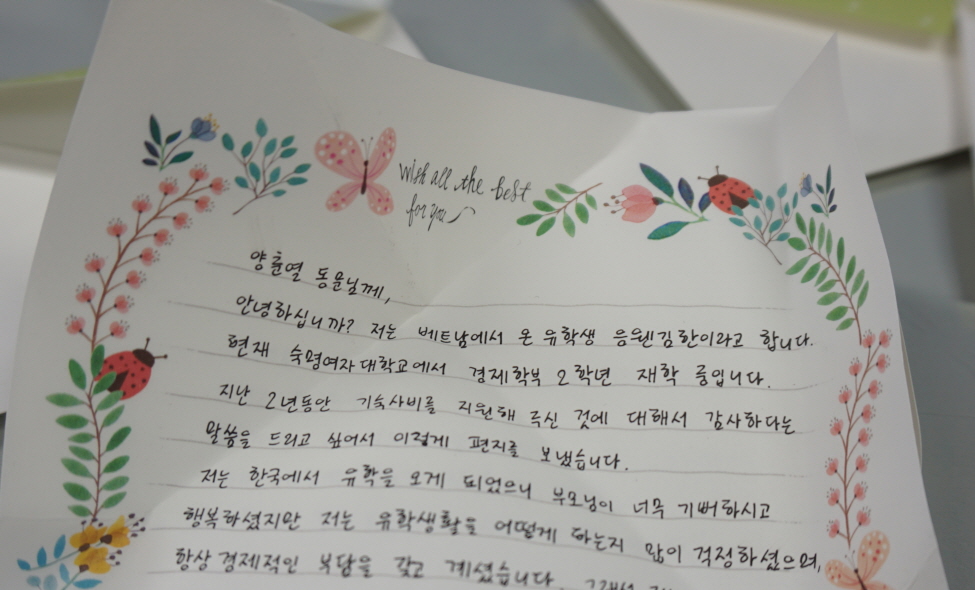 Wish all the best
for you
양윤열 동문님께,
안녕하십니까? 저는 베트남에서 온 유학생 응웬김한이라고 합니다.
현재 숙명여자대학교에서 경제학부 2학년 재학 중입니다.
지난 2년동안 기숙사비를 지원해 주신 것에 대해서 감사하다는
말씀을 드리고 싶어서 이렇게 편지를 보냈습니다.
저는 한국에서 유학을 오게 되었으니 부모님이 너무 기뻐하시고
행복하셨지만 저는 유학생활을 어떻게 하는지 많이 걱정하셨으며,
항상 경제적인 부담을 갖고 계셨습니다.